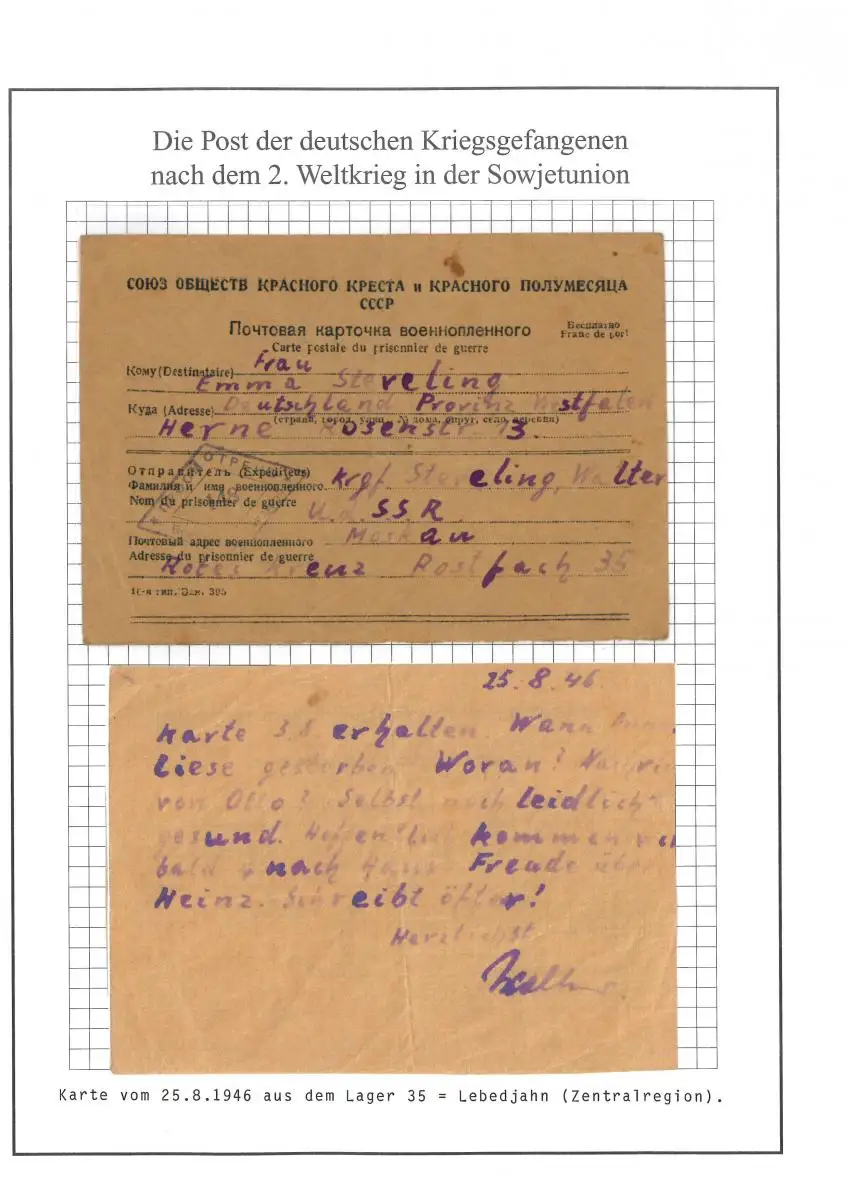 Die Post der deutschen Kriegsgefangenen
nach dem 2. Weltkrieg in der Sowjetunion
СОЮЗ ОБЩЕСТВ КРАСНОГО КРЕСТА и КРАСНОГО ПОЛУМЕСЯЦА
СССР
Почтовая карточка военнопленного
Бесплатно
Franc de port
Carte postale du prisonnier de guerre
Кому (Destinataire) Frau
Emma Stereling
Куда (Adresse) Deutschland Provinz Westfalen
(страна, город, улица, № дома, округ, село, деревня)
Herne Rosenstr. 13.
Отправитель (Expéditeur)
Фамилия и имя военнопленного Krgf. Stereling, Walter
Nom du prisonnier de guerre
U.d.SSR.
Почтовый адрес военнопленного Moskau
Adresse du prisonnier de guerre
Rotes Kreuz Postfach 35
16-я тип. Зак. 395
25.8.46.
Karte 3.8. erhalten. Wann Anne
liese gestorben? Woran? Nachri
von Otto? Selbst noch leidlich
gesund. Hoffentlich kommen wir
bald nach Haus. Freude über
Heinz. Schreibt öfter!
Herzlichst
Walter
Karte vom 25.8.1946 aus dem Lager 35 = Lebedjahn (Zentralregion).